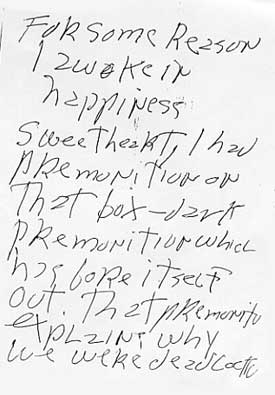 For some Reason
I awoke in
happiness
Sweetheart, I had
premonition on
That box-dark
premonition which
has bore itself
out. That premonito
explains why
we were